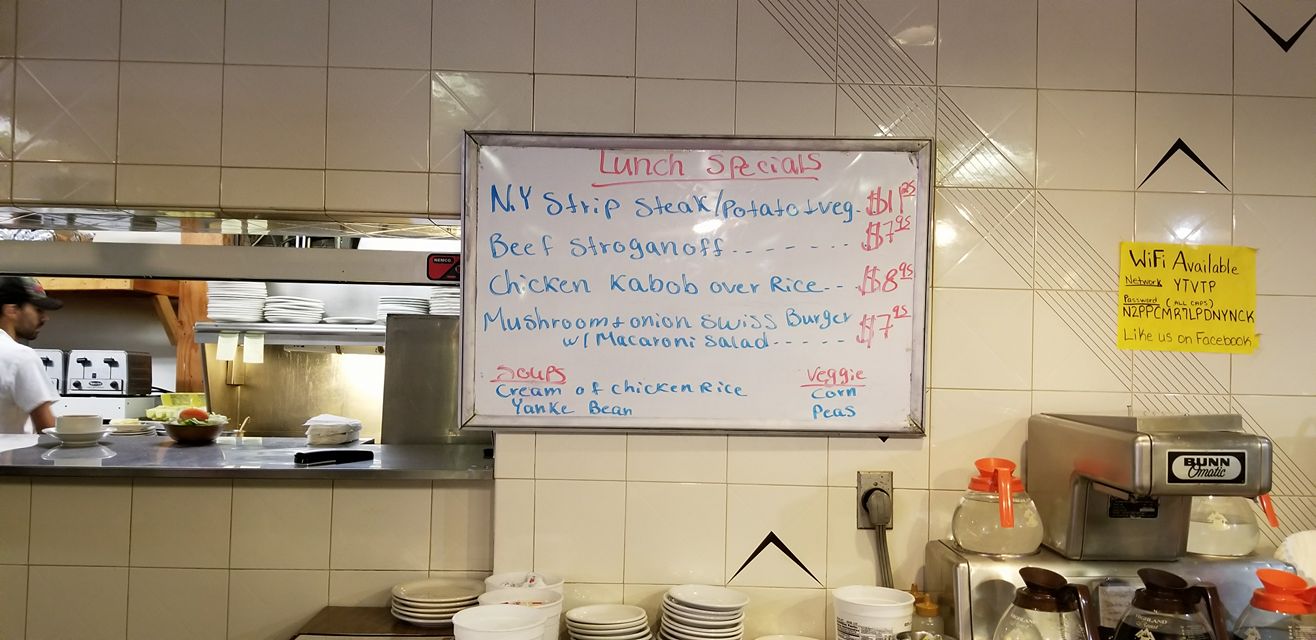 Lunch Specials
N.Y Strip Steak/Potato+veg. $11.95
Beef Stroganoff-------- $7.95
Chicken Kabob over Rice--- $8.95
Mushroom+onion Swiss Burger $7.95
w/ Macaroni Salad-----
Soups
Cream of Chicken Rice
Yanke Bean
Veggie
Corn
Peas
WiFi Available
Network YTVTP
Password (ALL CAPS)
N2PPCMR7LPDNYNCK
Like us on Facebook
NEMCO
BUNN
Omatic